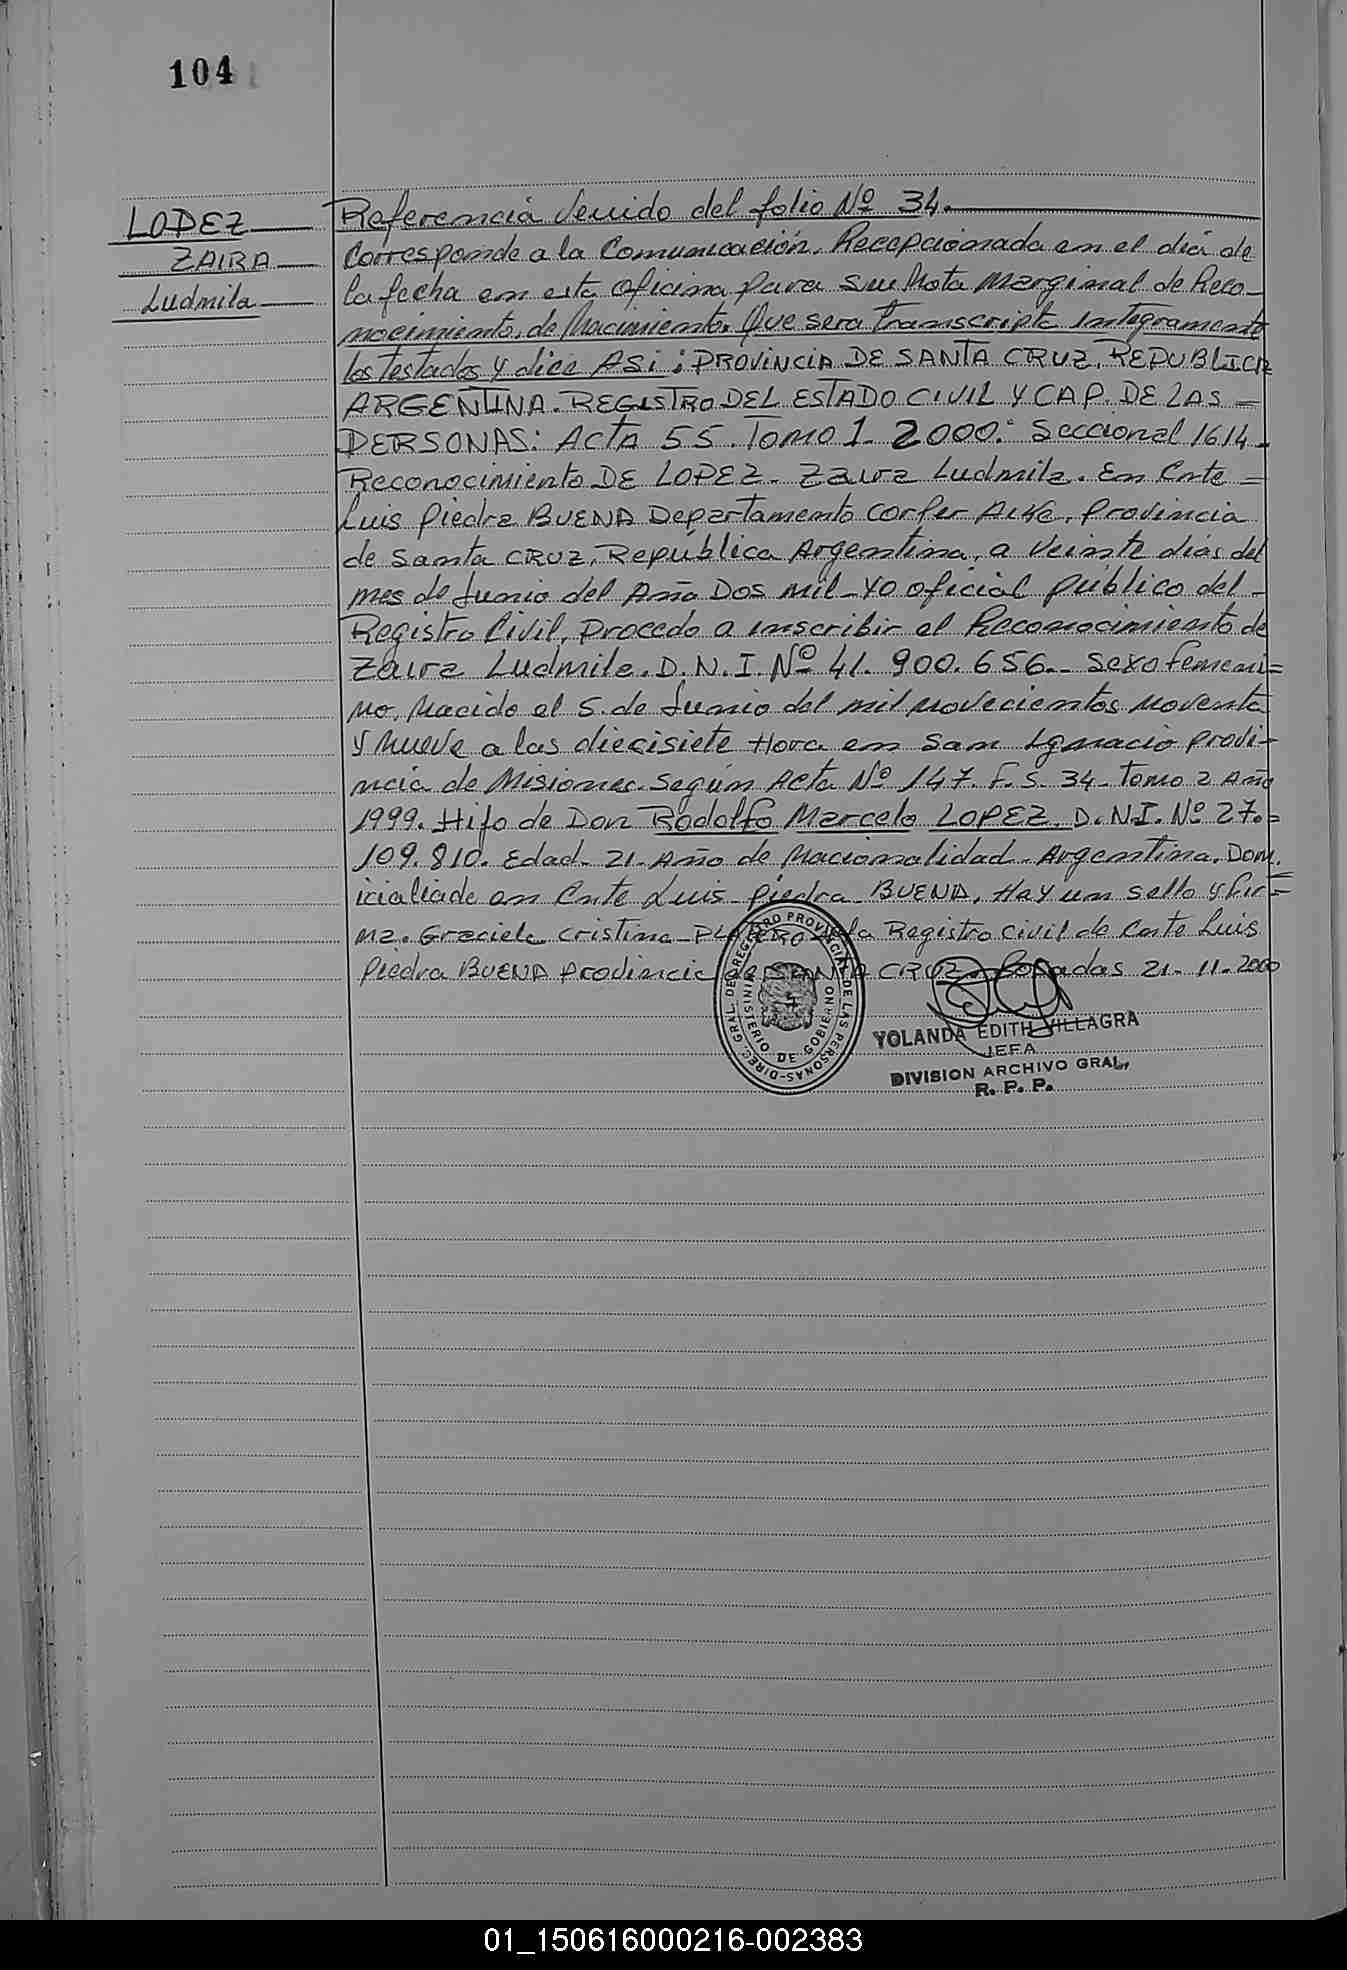 104
LOPEZ
ZAIRA
Ludmila
Referencia Venido del folio Nº 34.
Corresponde a la Comunicación, Recepcionada en el día de
la fecha en esta Oficina para su Nota Marginal de Reco-
nocimiento, de Nacimiento. Que sera transcripta integramente
los testados y dice ASi: PROVINCIA DE SANTA CRUZ, REPUBLICA
ARGENTINA. REGISTRO DEL ESTADO CIVIL Y CAP. DE LAS -
PERSONAS: ACTA 55. Tomo 1- 2000: Seccional 1614-
Reconocimiento DE LOPEZ- Zaira Ludmila. En Cnte =
Luis Piedra BUENA Departamento Corpen Aike, Provincia
de Santa CRUZ, República Argentina, a Veinte días del
mes de Junio del Año Dos mil- yo oficial público del -
Registro Civil, Procedo a inscribir el Reconocimiento de
Zaira Ludmila. D.N.I. Nº 41.900.656.- Sexo femeni=
no, Nacido el 5. de Junio del mil novecientos noventa
y nueve a las diecisiete Hora en San Ignacio provi-
ncia de Misiones. Según Acta Nº 147. F.S. 34- Tomo 2 Año
1999. Hijo de Don Rodolfo Marcelo LOPEZ. D.N.I. Nº 27.=
109.810. Edad- 21- Año de Nacionalidad- Argentina, Dom.
icialiado en Cnte Luis- Piedra- BUENA, Hay un sello y fir=
ma. Graciela Cristina- Registro Civil de Cnte Luis
Piedra BUENA Provincia de SANTA CRUZ- Posadas 21- 11-2000
DIREC. GRAL. DEL REGISTRO PROVINCIAL DE LAS PERSONAS
MINISTERIO DE GOBIERNO
YOLANDA EDITH VILLAGRA
JEFA
DIVISION ARCHIVO GRAL,
R. P. P.
01_150616000216-002383